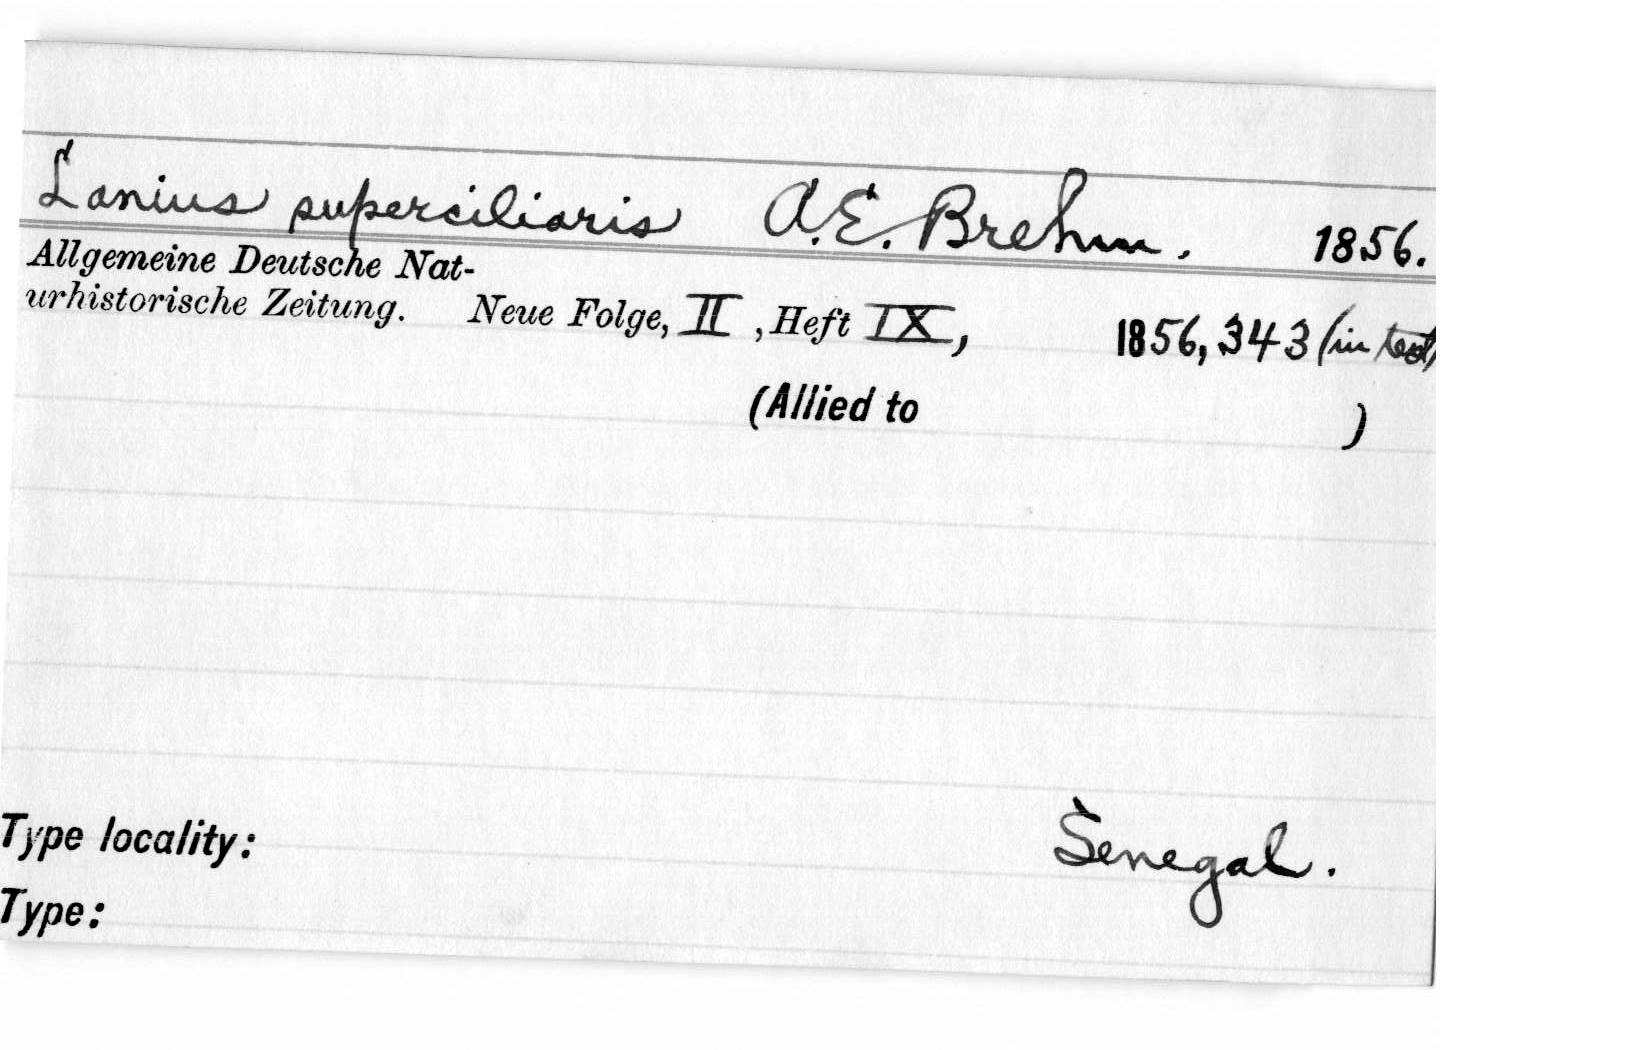 Lanius superciliaris A.E. Brehm. 1856.
Allgemeine Deutsche Nat-
urhistorische Zeitung. Neue Folge, II, Heft IX, 1856, 343 (in text)
(Allied to )
Type locality: Senegal.
Type: